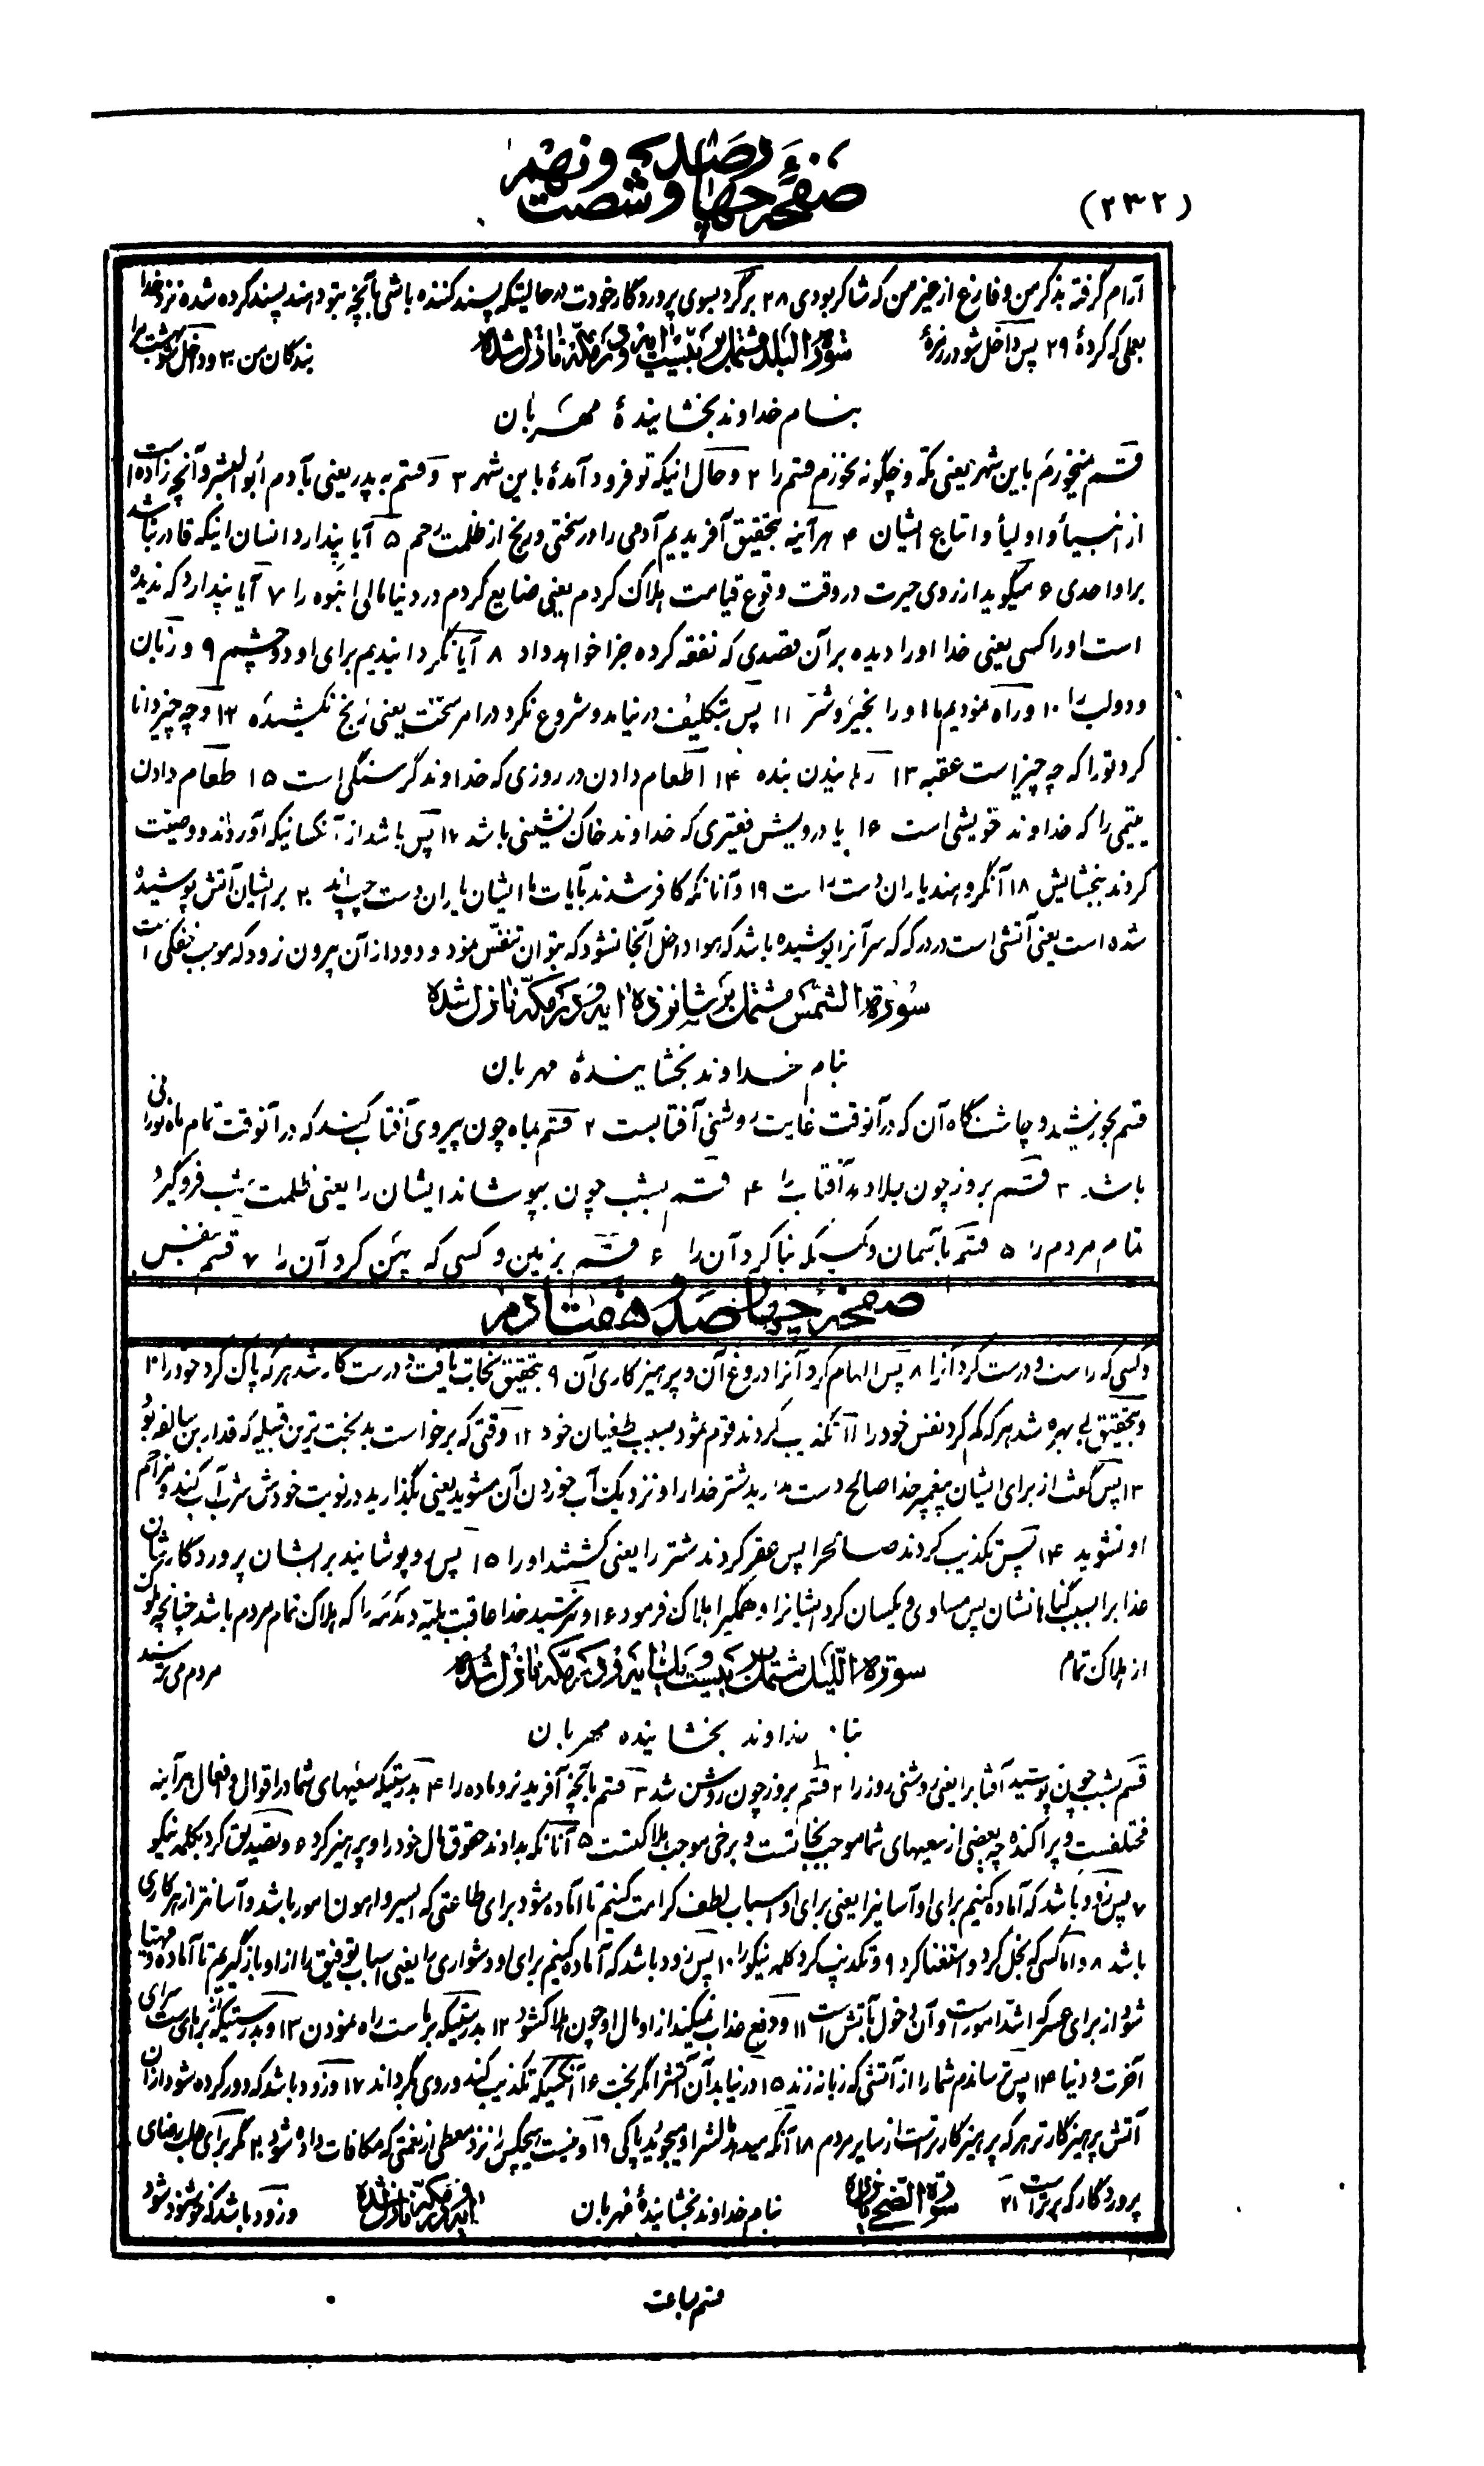 (۲۳۲)
صفحهٔ چهارصد و شصت و نهم
آرام گرفته بذکر من و فارغ از غیر من که شاکر بودی ۲۸ برگرد بسوی پروردگار خودت در حالیتیکه پسند کننده باشی بآنچه بتو دهند پسند کرده شده نزد خدا
بعملی که کردهٔ ۲۹ پس داخل شو در زمرهٔ بندگان من ۳۰ و داخل شو بهشت مرا
سورة البلد مشتمل بر بیست آیه و در مکه نازل شده
بنام خداوند بخشایندهٔ مهربان
قسم میخورم باین شهر یعنی مکه و چگونه نخورم قسم را ۲ و حال انیکه تو فرود آمدهٔ باین شهر ۳ و قسم به پدر یعنی بآدم ابو البشر و آنچه زاده است
از انبیأ و اولیأ و اتباع ایشان ۴ هرآینه بتحقیق آفریدیم آدمی را در سختی و رنج از ظلمت رحم ۵ آیا پندارد انسان اینکه قادر نباشد
براو احدی ۶ میگوید از روی حیرت در وقت وقوع قیامت هلاک کردم یعنی ضایع کردم در دنیا مالی انبوه را ۷ آیا پندارد که ندیده
است او را کسی یعنی خدا او را دیده بر آن قصدی که نفقه کرده جزا خواهد داد ۸ آیا نگردانیدیم برای او دو چشم ۹ و زبان
و دو لب را ۱۰ و راه نمودیم ما او را بخیر و شر ۱۱ پس بتکلیف در نیامد و شروع نکرد در امر سخت یعنی رنج نکشیده ۱۲ و چه چیز دانا
کرد تو را که چه چیز است عقبه ۱۳ رهانیدن بنده ۱۴ اطعام دادن در روزی که خداوند گرسنگی است ۱۵ طعام دادن
یتیمی را که خداوند خویشی است ۱۶ یا درویش فقیری که خداوند خاک نشینی باشد ۱۷ پس باشد از آنکسانیکه آورداند و وصیت
کردند ببخشایش ۱۸ آنگروهند یاران دست راست ۱۹ و آنانکه کافر شدند بآیات ما ایشان یاران دست چپ اند ۲۰ بر ایشان آتش پوشیده
شده است یعنی آتشی است در درکه که سر آنرا پوشیده باشد که هوا داخل آنجا نشود که بتوان تنفس نمود و دود از آن بیرون نرود که موجب خفگی است
سورة الشمس مشتمل بر شانزده آیه و در مکه نازل شده
بنام خداوند بخشایندهٔ مهربان
قسم بخورشید و چاشتگاه آن که در آنوقت غایت روشنی آفتابست ۲ قسم بماه چون پیروی آفتاب کند که در آنوقت تمام ماه نورانی
باشد ۳ قسم بروز چون جلا دهد آفتاب را ۴ قسم بشب چون بپوشاند ایشان را یعنی ظلمت شب فرو گیرد
تمام مردم را ۵ قسم بآسمان و کسیکه بنا کرد آن را ۶ قسم بزمین و کسی که پهن کرد آن را ۷ قسم بنفس
صفحهٔ چهارصد و هفتادم
و کسی که راست و درست کرد آنرا ۸ پس الهام کرد آنرا دروغ آن و پرهیزکاری آن ۹ بتحقیق نجات یافت و درست کار شد هر که پاک کرد خود را ۱۰
و بتحقیق بی بهره شد هر که گم کرد نفس خود را ۱۱ تکذیب کردند قوم ثمود بسبب طغیان خود ۱۲ وقتی که برخواست بدبخت ترین قبیله که قدار بن سالف بود
۱۳ پس گفت از برای ایشان پیغمبر خدا صالح دست بدارید شتر خدا را و نزدیک آب خوردن آن مشوید یعنی بگذارید در نوبت خودش شرب آب کند و مزاحم
او نشوید ۱۴ پس تکذیب کردند صالحرا پس عقر کردند شتر را یعنی کشتند او را ۱۵ پس و پوشانید بر ایشان پروردگارشان
عذاب را بسبب گناهانشان پس مساوی و یکسان کرد ایشانرا و همگیرا هلاک فرمود ۱۶ و نترسید خدا عاقبت بلیه و دمدمه را که هلاک تمام مردم باشد چنانچه ملوک
از هلاک تمام مردم می ترسند
سورة اللیل مشتمل بر بیست و یک آیه و در مکه نازل شده
بنام خداوند بخشاینده مهربان
قسم بشب چون پوشید آفتاب را یعنی روشنی روز را ۲ قسم بروز چون روشن شد ۳ قسم بآنچه آفرید نر و ماده را ۴ بدرستیکه سعیهای شما در اقوال و افعال هرآینه
مختلفست و پراکنده چه بعضی از سعیهای شما موجب نجاتست و برخی موجب هلاکتست ۵ آنانکه بدادند حقوق مال خود را و پرهیز کرد ۶ و تصدیق کرد بکلمه نیکو
۷ پس زود باشد که آماده کنیم برای او آسانیرا یعنی برای او اسباب لطف کرامت کنیم تا آماده شود برای طاعتی که ایسر و اهون امور باشد و آسانتر از هر کاری
باشد ۸ و اما کسی که بخل کرد و استغنا کرد ۹ و تکذیب کرد کلمه نیکو را ۱۰ پس زود باشد که آماده کنیم برای او دشواری را یعنی اسباب توفیق را از او باز گیریم تا آماده و مهیا
شود از برای عسر که اشد امور است و آن دخول بآتش است ۱۱ و دفع عذاب نمیکند از او مال او چون هلاک شود ۱۲ بدرستیکه بر ماست راه نمودن ۱۳ و بدرستیکه بر مای است سرای
آخرت و دنیا ۱۴ پس ترساندم شما را از آتشی که زبانه زند ۱۵ در نیابد آن آتش را مگر بدبخت ۱۶ آنکسیکه تکذیب کند و روی گرداند ۱۷ و زود باشد که دور کرده شود از آن
آتش پرهیزگارتر هر که پرهیزگارتر است از سایر مردم ۱۸ آنکه میدهد مالش را و میجوید پاکی ۱۹ و نیست هیچکس را نزد معطی از نعمتی که مکافات داده شود ۲۰ مگر برای طلب رضای
پروردگار که برتر است ۲۱ سورة الضحی یازده بنام خداوند بخشایندهٔ مهربان آیه و در مکه نازل شده و زود باشد که خوشنود شود
قسم بساعت